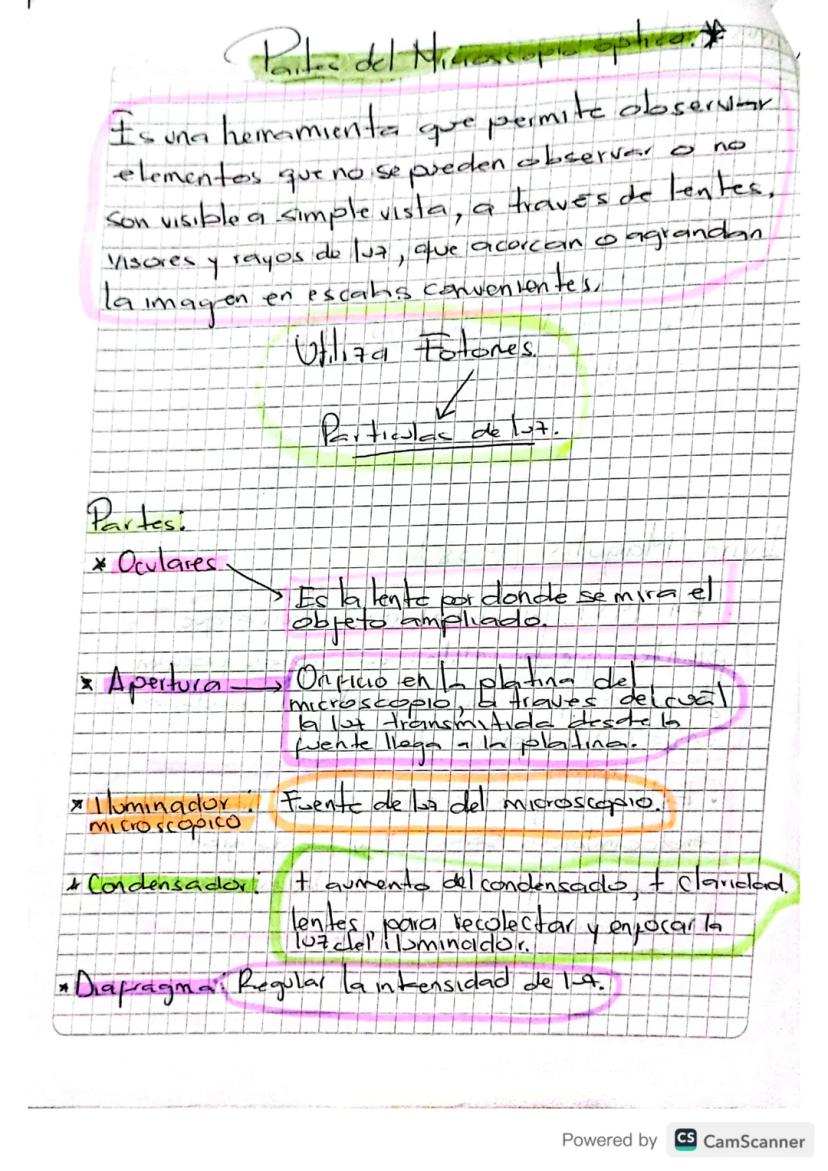 Partes del Microscopio óptico.*
Es una herramienta que permite observar
elementos que no se pueden observar o no
son visible a simple vista, a través de lentes,
visores y rayos de luz, que acercan o agrandan
la imagen en escalas convenientes.
Utiliza Fotones.
Particulas de luz.
Partes:
* Oculares
Es la lente por donde se mira el
objeto ampliado.
* Apertura
Orificio en la platina del
microscopio, a traves del cual
la luz transmitida desde la
fuente llega a la platina.
* Iluminador :
microscópico
Fuente de luz del microscopio.
* Condensador:
+ aumento del condensado, + claridad.
lentes, para recolectar y enfocar la
luz del iluminador.
* Diafragma: Regular la intensidad de luz.
Powered by CS CamScanner